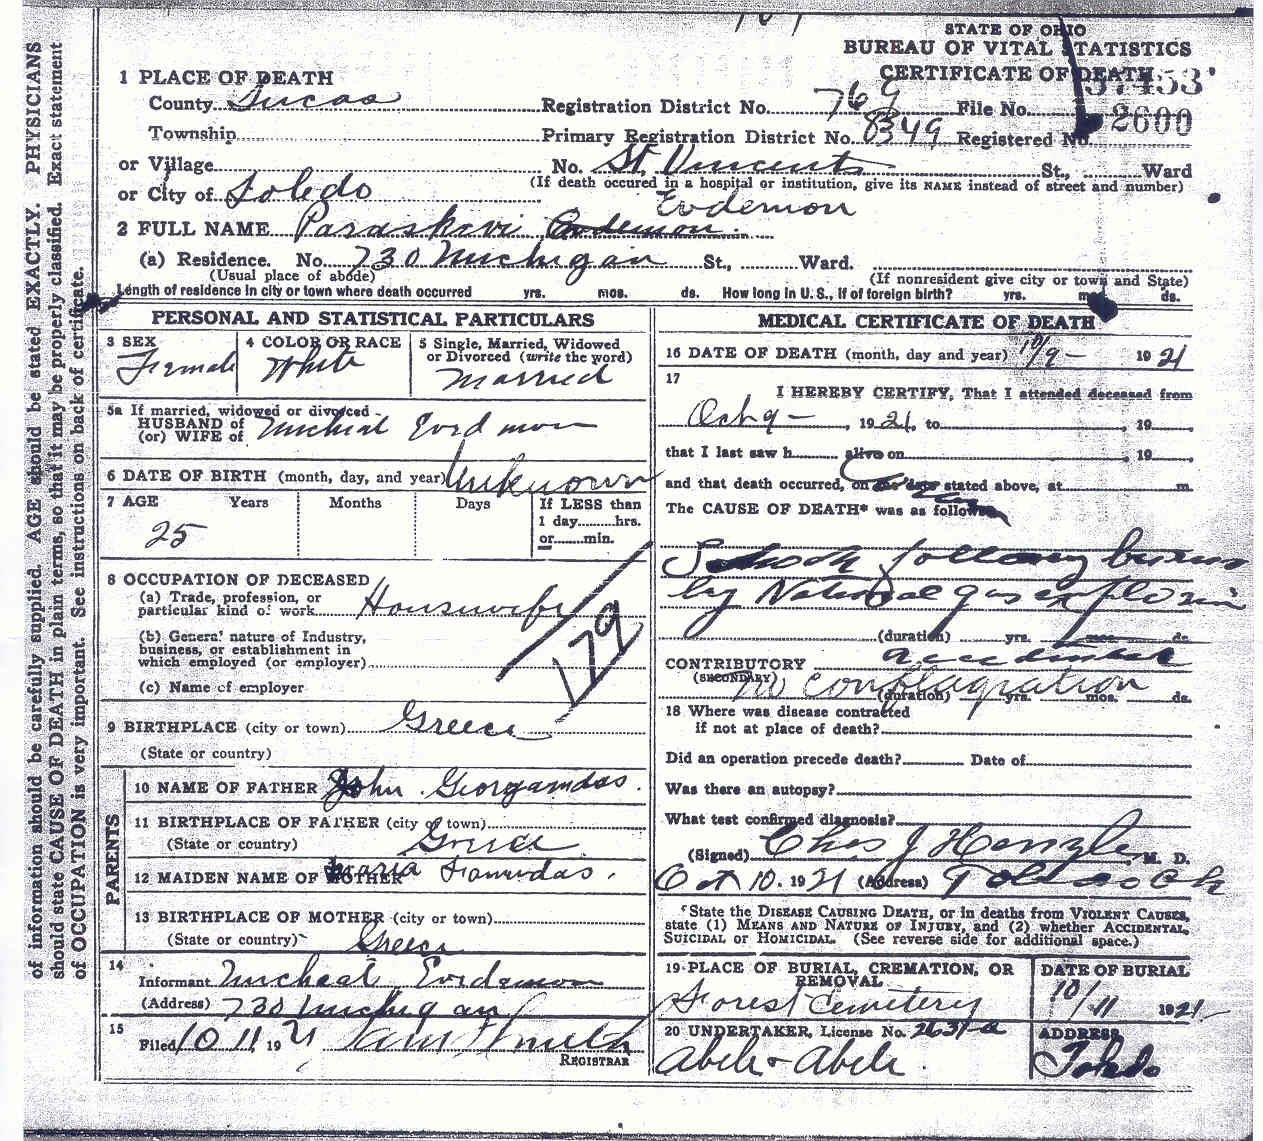 STATE OF OHIO
BUREAU OF VITAL STATISTICS
CERTIFICATE OF DEATH
1 PLACE OF DEATH
County Lucas Registration District No. 769 File No. 57453
Township Primary Registration District No. 8349 Registered No. 2600
or Village No. St. Vincents St., Ward
or City of Toledo (If death occured in a hospital or institution, give its NAME instead of street and number)
Evdemon
2 FULL NAME Paraskevi Evdemon
(a) Residence. No. 730 Michigan St., Ward.
(Usual place of abode) (If nonresident give city or town and State)
Length of residence in city or town where death occurred yrs. mos. ds. How long in U. S., if of foreign birth? yrs. mos. ds.
PERSONAL AND STATISTICAL PARTICULARS
3 SEX
Female
4 COLOR OR RACE
White
5 Single, Married, Widowed
or Divorced (write the word)
Married
5a If married, widowed or divorced
HUSBAND of
(or) WIFE of Micheal Evdemon
6 DATE OF BIRTH (month, day, and year) Unknown
7 AGE Years Months Days If LESS than
1 day hrs.
or min.
25
8 OCCUPATION OF DECEASED
(a) Trade, profession, or
particular kind of work Housewife
(b) General nature of Industry,
business, or establishment in
which employed (or employer)
(c) Name of employer
179
9 BIRTHPLACE (city or town) Greece
(State or country)
PARENTS
10 NAME OF FATHER John Georgamdas.
11 BIRTHPLACE OF FATHER (city or town)
(State or country) Greece
12 MAIDEN NAME OF MOTHER Maria
13 BIRTHPLACE OF MOTHER (city or town)
(State or country) Greece
14
Informant Micheal Evdemon
(Address) 730 Michigan
15
Filed 10 11, 1921
REGISTRAR
MEDICAL CERTIFICATE OF DEATH
16 DATE OF DEATH (month, day and year) 10/9 - 1921
17
I HEREBY CERTIFY, That I attended deceased from
Oct 9 -, 1921, to , 19
that I last saw h alive on , 19
and that death occurred, on the date stated above, at m.
The CAUSE OF DEATH* was as follows
Shock following burns
by Natural gas explosion
(duration) yrs. mos. ds.
accidental
CONTRIBUTORY
(SECONDARY) no conflagration
(duration) yrs. mos. ds.
18 Where was disease contracted
if not at place of death?
Did an operation precede death? Date of
Was there an autopsy?
What test confirmed diagnosis?
(Signed) Chas J Henzler, M. D.
Oct 10, 1921 (Address) Toledo O
*State the DISEASE CAUSING DEATH, or in deaths from VIOLENT CAUSES,
state (1) MEANS AND NATURE OF INJURY, and (2) whether ACCIDENTAL,
SUICIDAL OR HOMICIDAL. (See reverse side for additional space.)
19 PLACE OF BURIAL, CREMATION, OR
REMOVAL
Forest Cemetery
DATE OF BURIAL
10/11 1921
20 UNDERTAKER, License No. 2631-a
Abele & Abele.
ADDRESS
Toledo
of information should be carefully supplied. AGE should be stated EXACTLY. PHYSICIANS
should state CAUSE OF DEATH in plain terms, so that it may be properly classified. Exact statement
of OCCUPATION is very important. See instructions on back of certificate.